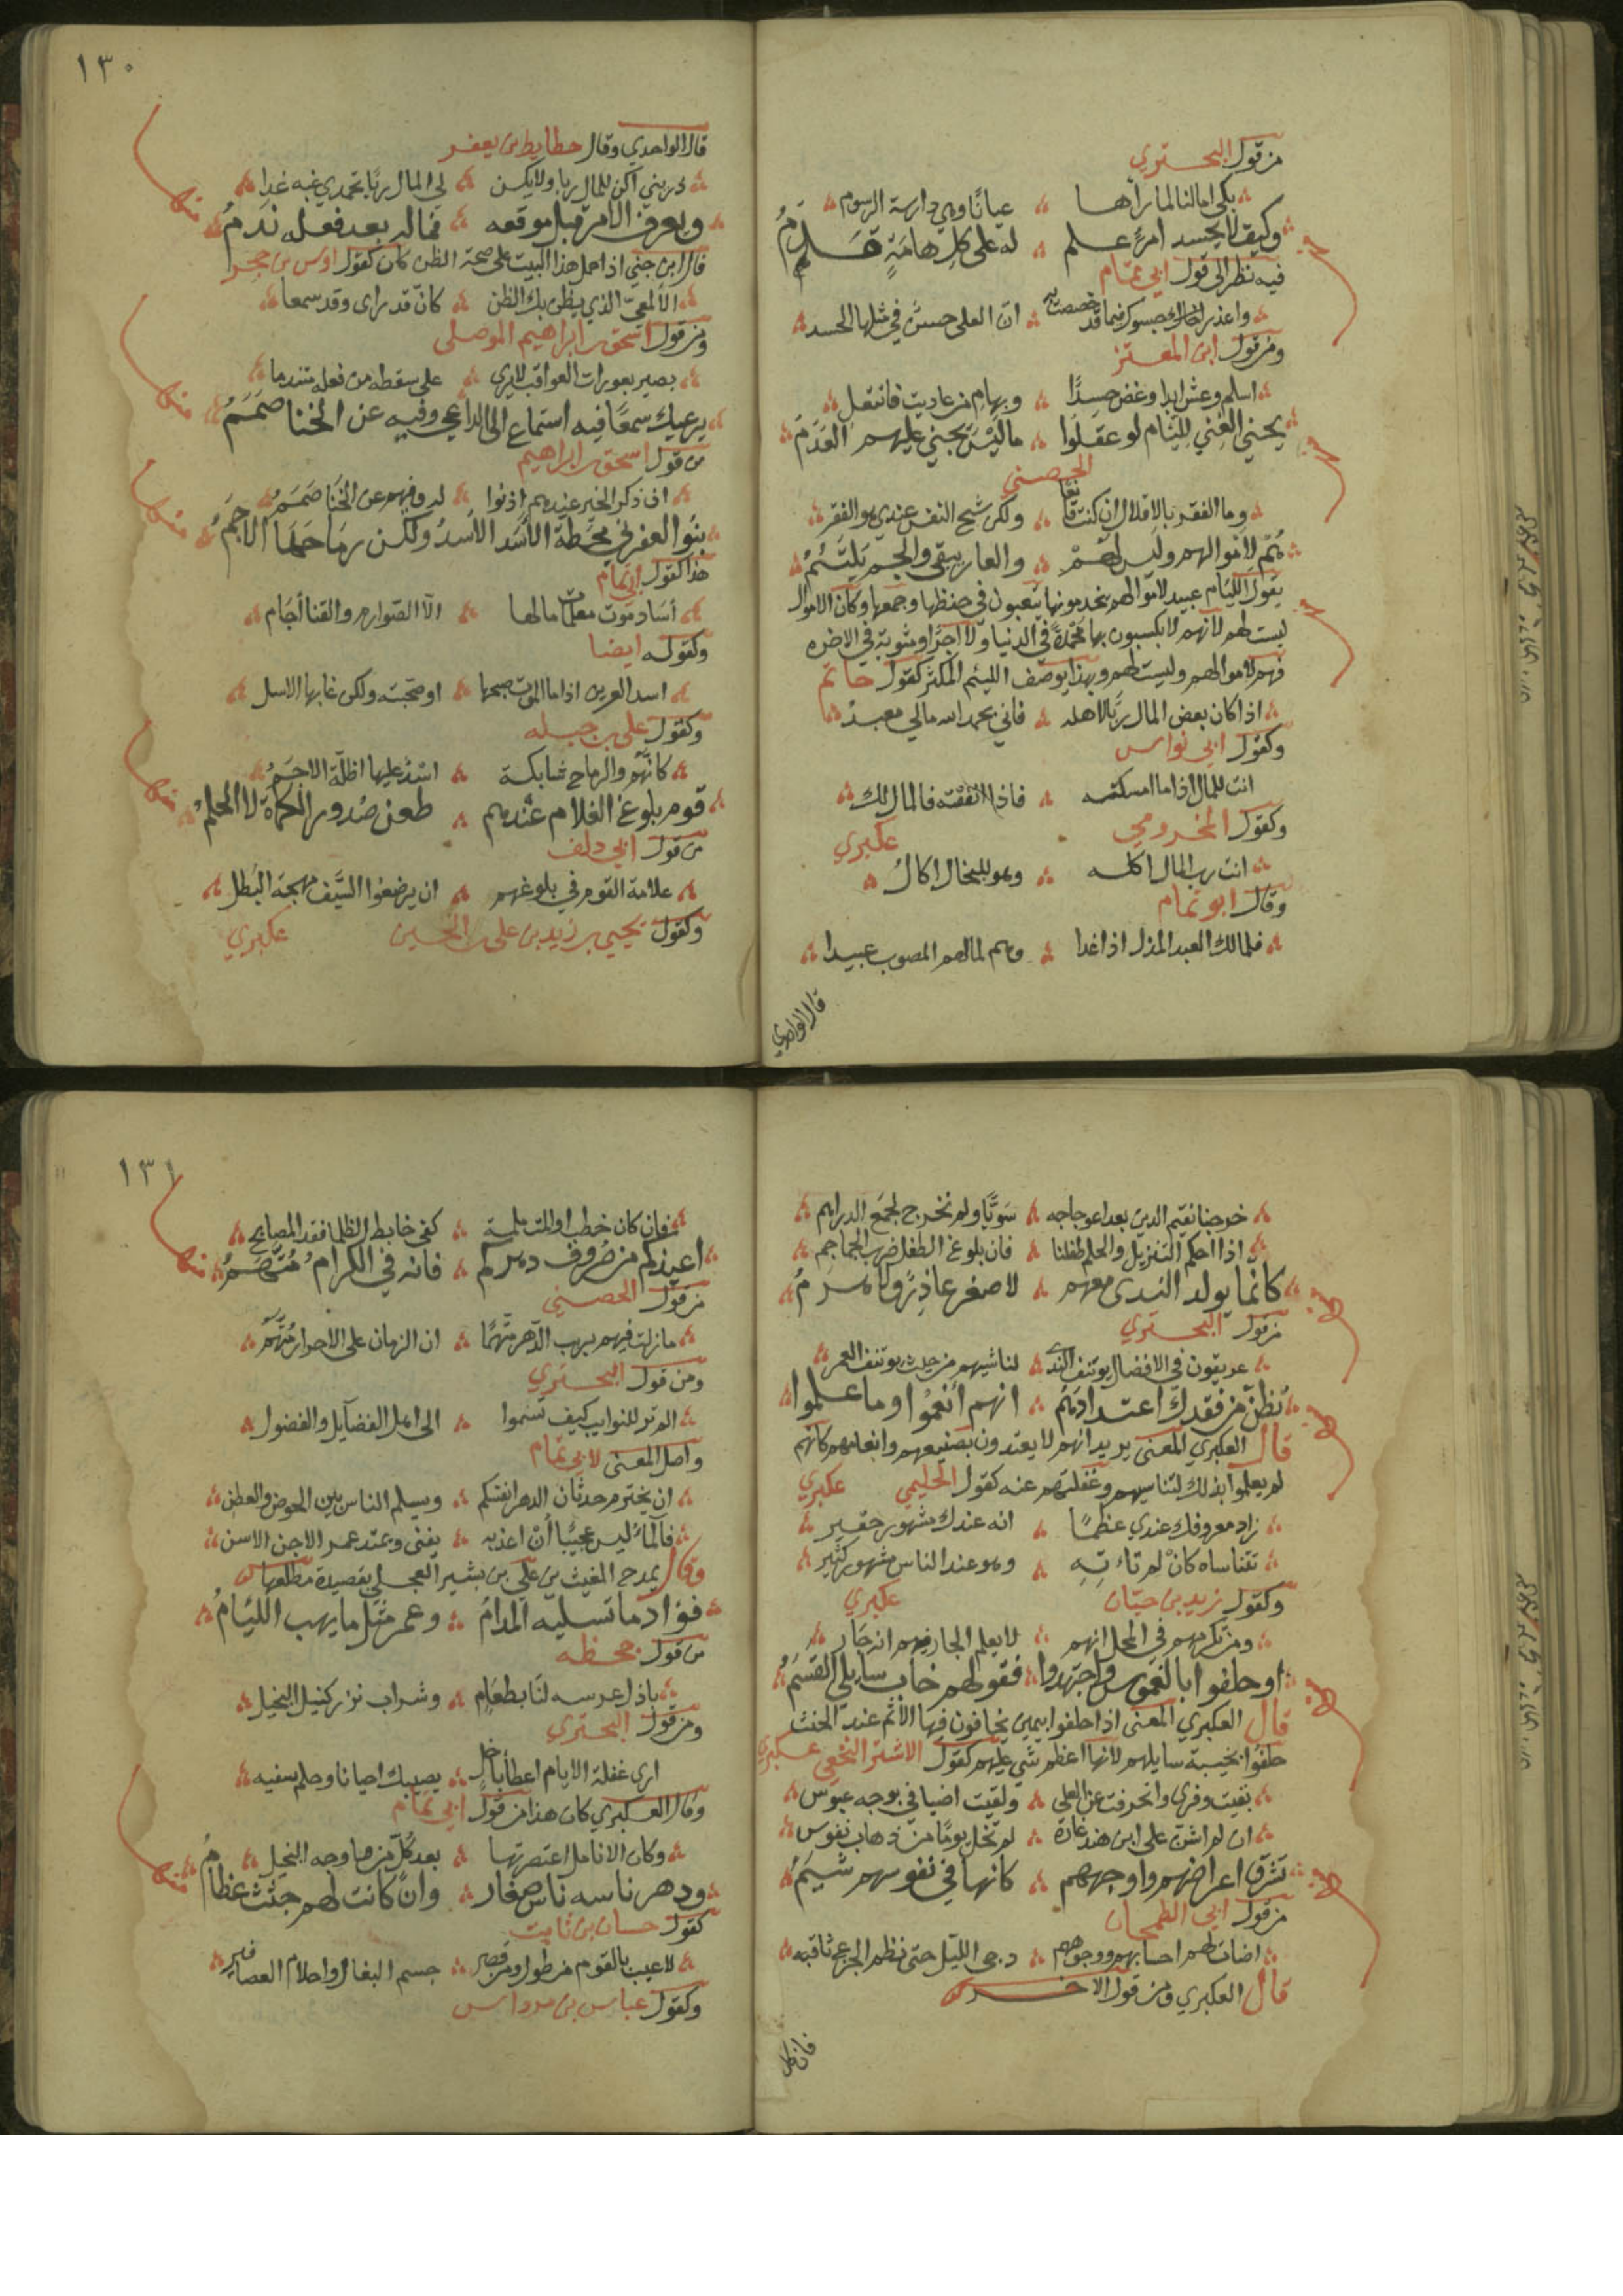 من قول البحتري
بكى امالنا لما رآها عيانًا وهي دارسة الرسوم
وكيف لا يحسد امرؤ علم له على كل هامة قدم
فيه نظر الى قول ابي تمام
واعذر حسودك فيما قد خصصت به ان العلى حسن في مثلها الحسد
ومن قول ابن المعتز
يجني الغني للئام لو عقلوا ما ليس يجني عليهم العدم
الحصني
وما الفقر بالاقلال ان كنت قانعا ولكن شح النفس عندي هو الفقر
هم لاموالهم وليس لهم والعار يبقى والجرح يلتئم
يقول اللئام عبيد لاموالهم يخدمونها يتعبون في حفظها وجمعها وكان الاموال
ليست لهم لانهم لا يكسبون بها محمدة في الدنيا ولا اجرا ومثوبة في الاخره
فهم لاموالهم وليست لهم وبهذا يوصف اللئيم المكثر كقول حاتم
اذا كان بعض المال ربا لاهله فاني بحمد الله مالي معبد
وكقول ابي نواس
انت للمال اذا ما امسكته فاذا انفقته فالمال لك
وكقول المخزومي عكبري
انت رب المال اكله وهو للبخال اكال
وقال ابو تمام
قال الواحدي
١٣٠
قال الواحدي وقال حطايط بن يعفر
ذريني اكن للمال ربا ولا يكن لي المال ربا تحمدي غبه غدا
ويعرف الامر قبل موقعه فما له بعد فعله ندم
قال ابن جني اذا حمل هذا البيت على صحة الظن كان كقول اوس بن حجر
الالمعي الذي يظن بك الظن كان قد راى وقد سمعا
ومن قول اسحق بن ابراهيم الموصلي
بصير بعورات العواقب لا يرى على سقطه من فعله متندما
يرعيك سمعا فيه استماع الى الداعي وفيه عن الخنا صمم
من قول اسحق بن ابراهيم
ان ذكر الخير عندهم اذنوا له وفيهم عن الخنا صمم
بنو العفرنى محطة الاسد الاسد ولكن رماحها الاجم
هذا كقول ابي تمام
آساد موت معلمات ما لها الا الصوارم والقنا آجام
وكقوله ايضا
اسد العرين اذا ما الموت صبحها او صبحته ولكن غابها الاسل
وكقول علي بن جبله
كانهم والرماح شابكة اسد عليها اظلة الاجم
قوم بلوغ الغلام عندهم طعن صدور الكماة لا الحلم
من قول ابي دلف
علامة القوم في بلوغهم ان يرضعوا السيف مهجة البطل
وكقول يحيى بن زيد بن علي بن الحسين عكبري
خرجنا نقيم الدين بعد اعوجاجه سويا ولم نخرج لجمع الدراهم
اذا احكم التنزيل والحلم طفلنا فان بلوغ الطفل ضرب الجماجم
كانما يولد الندى معهم لا صغر عاذر ولا هرم
من قول البحتري
عريقون في الافضال يوتنف الندى لناشيهم من حيث يوتنف العمر
تظن من فقدك اعتدادهم انهم انعموا وما علموا
قال العكبري المعنى يريد انهم لا يعتدون بصنيعهم وانعامهم كانهم
لم يعلموا بذلك لتناسيهم وغفلتهم عنه كقول الحليمي عكبري
زاد معروفك عندي عظما انه عندك مشهور حقير
تتناساه كان لم تاته وهو عند الناس مشهور كثير
وكقول زيد بن حبان عكبري
ومن تكرمهم في المحل انهم لا يعلم الجار فيهم انه جار
او حلفوا بالغموس واجتهدوا فقولهم خاب سايلي القسم
قال العكبري المعنى اذا حلفوا بيمين يخافون فيها الاثم عند الحنث
حلفوا بخيبة سايلهم لانها اعظم شي عليهم كقول الاشتر النخعي عكبري
بقيت وفري وانحرفت عن العلى ولقيت اضيافي بوجه عبوس
ان لم اشن على ابن هند غارة لم تخل يوما من ذهاب نفوس
تشرق اعراضهم واوجههم كانها في نفوسهم شيم
من قول ابي الطمحان
اضات لهم احسابهم ووجوههم دجى الليل حتى نظم الجزع ثاقبه
قال العكبري ومن قول الاخر
فان كان
١٣١
فان كان خطب او المت ملمة كفى خابط الظلما فقد المصابح
اعيذكم من صروف دهركم فانه في الكرام متهم
من قول الحصني
ما زلت فيهم بريب الدهر متهما ان الزمان على الاحرار متهم
ومن قول البحتري
الم تر للنوايب كيف تسموا الى اهل الفضايل والفضول
واصل المعنى لابي تمام
ان يخترم حدثان الدهر انفسكم ويسلم الناس بين الحوض والعطن
فالماء ليس عجيبا ان اعذبه يفنى ويمتد عمر الاجن الاسن
وقال يمدح المغيث بن علي بن بشير العجلي بقصيدة مطلعها
فؤاد ما تسليه المدام وعمر مثل ما يهب اللئام
من قول جحظه
باذل عرسه لنا بطعام وشراب نزر كنيل البخيل
ومن قول البحتري
ارى غفلة الايام اعطا باخل يصيبك احيانا وحلم سفيه
وقال العكبري كان هذا من قول ابي تمام
وكان الانامل اعتصرتها بعد كد من ما وجه البخيل
ودهر ناسه ناس صغار وان كانت لهم جثث عظام
كقول حسان بن ثابت
لا عيب بالقوم من طول ومن قصر جسم البغال واحلام العصافير
وكقول عباس بن مرداس